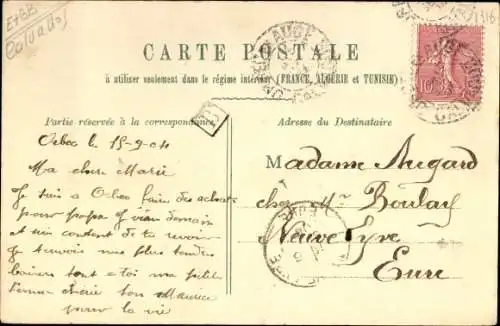 CARTE POSTALE
à utiliser seulement dans le régime intérieur (FRANCE, ALGÉRIE et TUNISIE)
Partie réservée à la correspondance
Adresse du Destinataire
Orbec le 15-9-04
Ma chère Marie
Je suis a Orbec faire des achats
pour
et suis content de te revoir
Je t'envoie mes plus tendres
baisers tout a toi ma petite
femme chérie ton Maurice
pour la vie
Madame Augard
chez Mr Boulay
Neuve Lyre
Eure
10